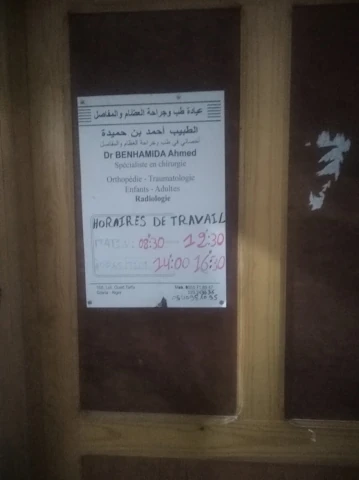 عيادة طب وجراحة العظام والمفاصل
الطبيب أحمد بن حميدة
أخصائي في طب وجراحة العظام والمفاصل
Dr BENHAMIDA Ahmed
Spécialiste en chirurgie
Orthopédie - Traumatologie
Enfants - Adultes
Radiologie
HORAIRES DE TRAVAIL
08:30 12:30
14:00 16:30